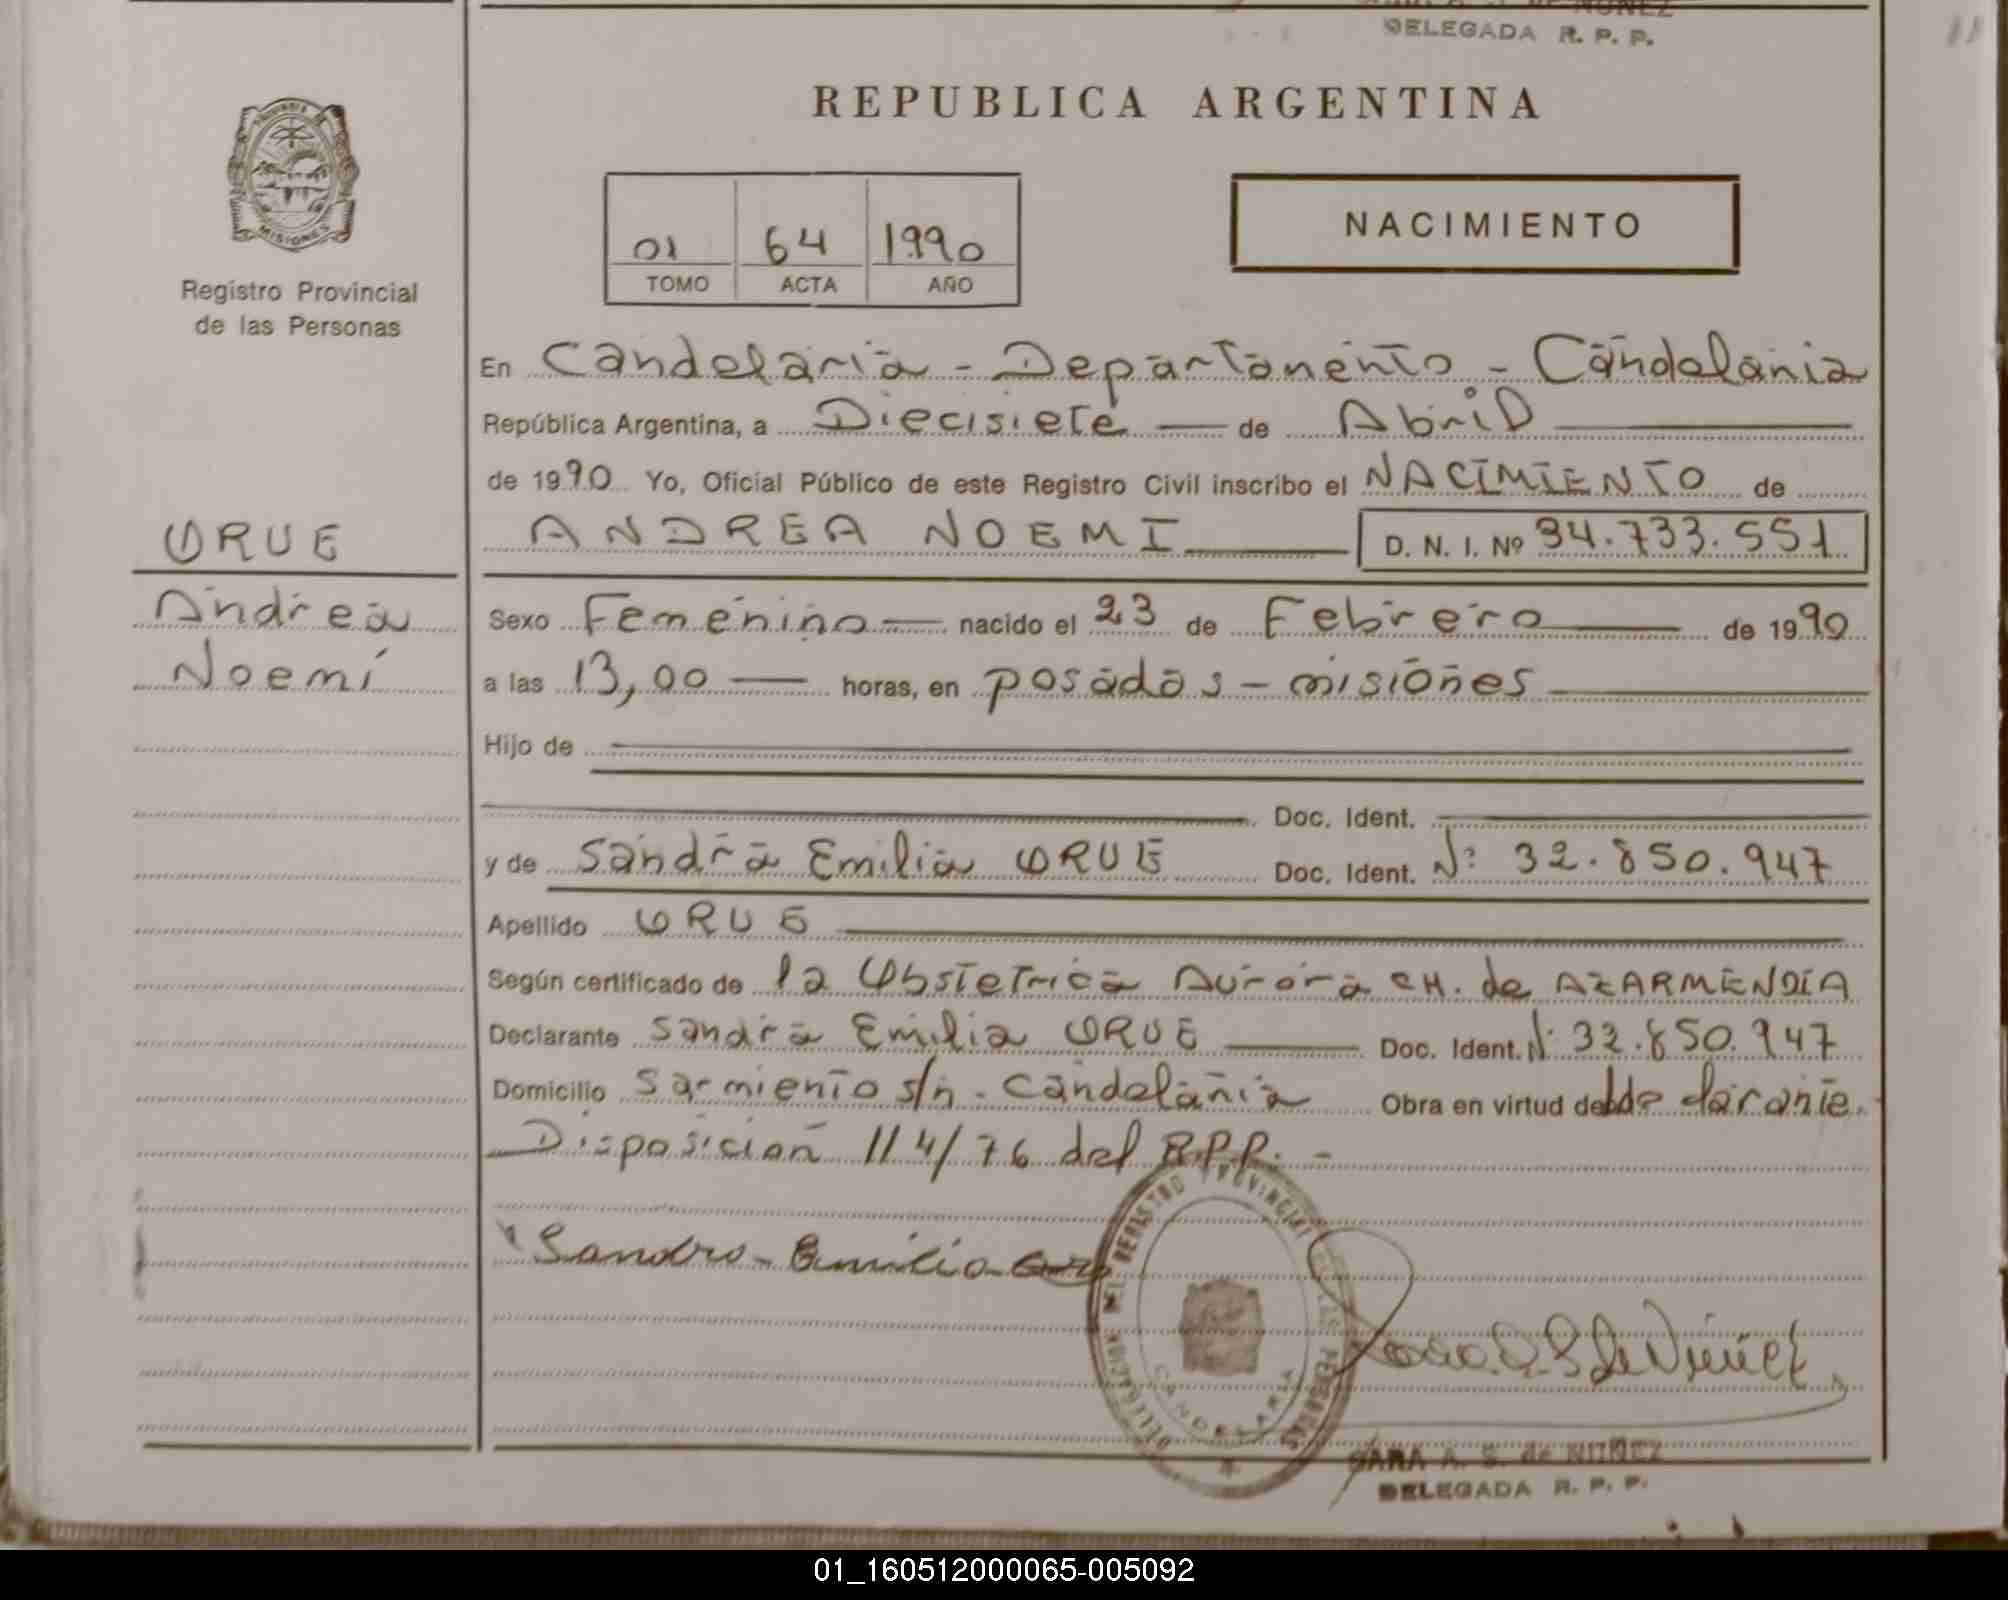 DELEGADA R. P. P.
REPUBLICA ARGENTINA
MISIONES
Registro Provincial
de las Personas
01 64 1990
TOMO ACTA AÑO
NACIMIENTO
En Candelaria - Departamento - Candelaria
República Argentina, a Diecisiete — de Abril
de 1990 Yo, Oficial Público de este Registro Civil inscribo el NACIMIENTO de
ORUE
ANDREA NOEMI D. N. I. Nº 34.733.551
Andrea
Noemí
Sexo Femenino — nacido el 23 de Febrero — de 1990
a las 13,00 — horas, en posadas - misiones
Hijo de
Doc. Ident.
y de Sandra Emilia ORUE Doc. Ident. Nº 32.850.947
Apellido ORUE
Según certificado de la Obstetrica Aurora CH. de AZARMENDIA
Declarante Sandra Emilia ORUE — Doc. Ident. Nº 32.850.947
Domicilio Sarmiento s/n. Candelaria Obra en virtud de declarante.
Disposición 114/76 del R.P.P. -
Sandra Emilia
DEL REGISTRO PROVINCIAL DE LAS PERSONAS
CANDELARIA
SARA A. S. de NUÑEZ
DELEGADA R. P. P.
01_160512000065-005092